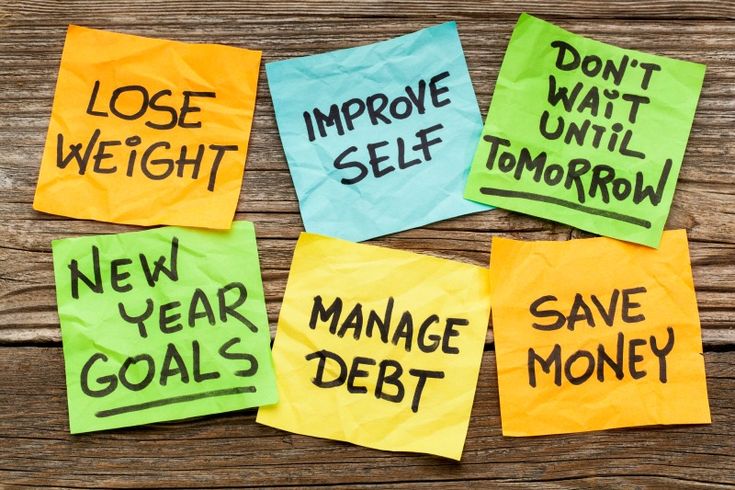 LOSE
WEIGHT
IMPROVE
SELF
DON'T
WAIT
UNTIL
TOMORROW
NEW
YEAR
GOALS
MANAGE
DEBT
SAVE
MONEY